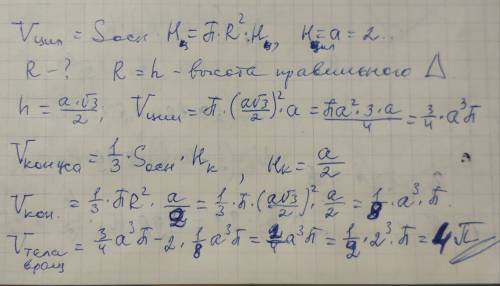 Vцил = Sосн Hц = П·R²·Hц, Hцил = a = 2..
R - ? R = h - высота правильного Δ
h = a·√3/2; Vцил = П·(a√3/2)²·a = Пa²·3·a/4 = 3/4·a³П
Vконуса = 1/3·Sосн·Hк, Hк = a/2
Vкон. = 1/3·ПR²·a/2 = 1/3·П·(a√3/2)²·a/2 = 1/8·a³·П.
Vтела вращ = 3/4 a³П - 2·1/8 a³П = 2/4 a³П = 1/2·2³·П = 4П